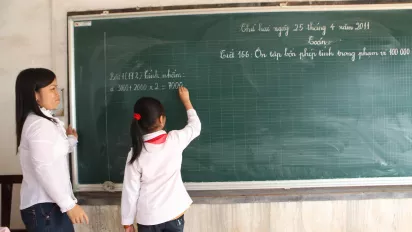 Thứ hai ngày 25 tháng 4 năm 2011
Toán:
Tiết 156: Ôn tập bốn phép tính trong phạm vi 100 000
Bài 1(172) Tính nhẩm
a. 3000 + 2000 x 2 = 7000